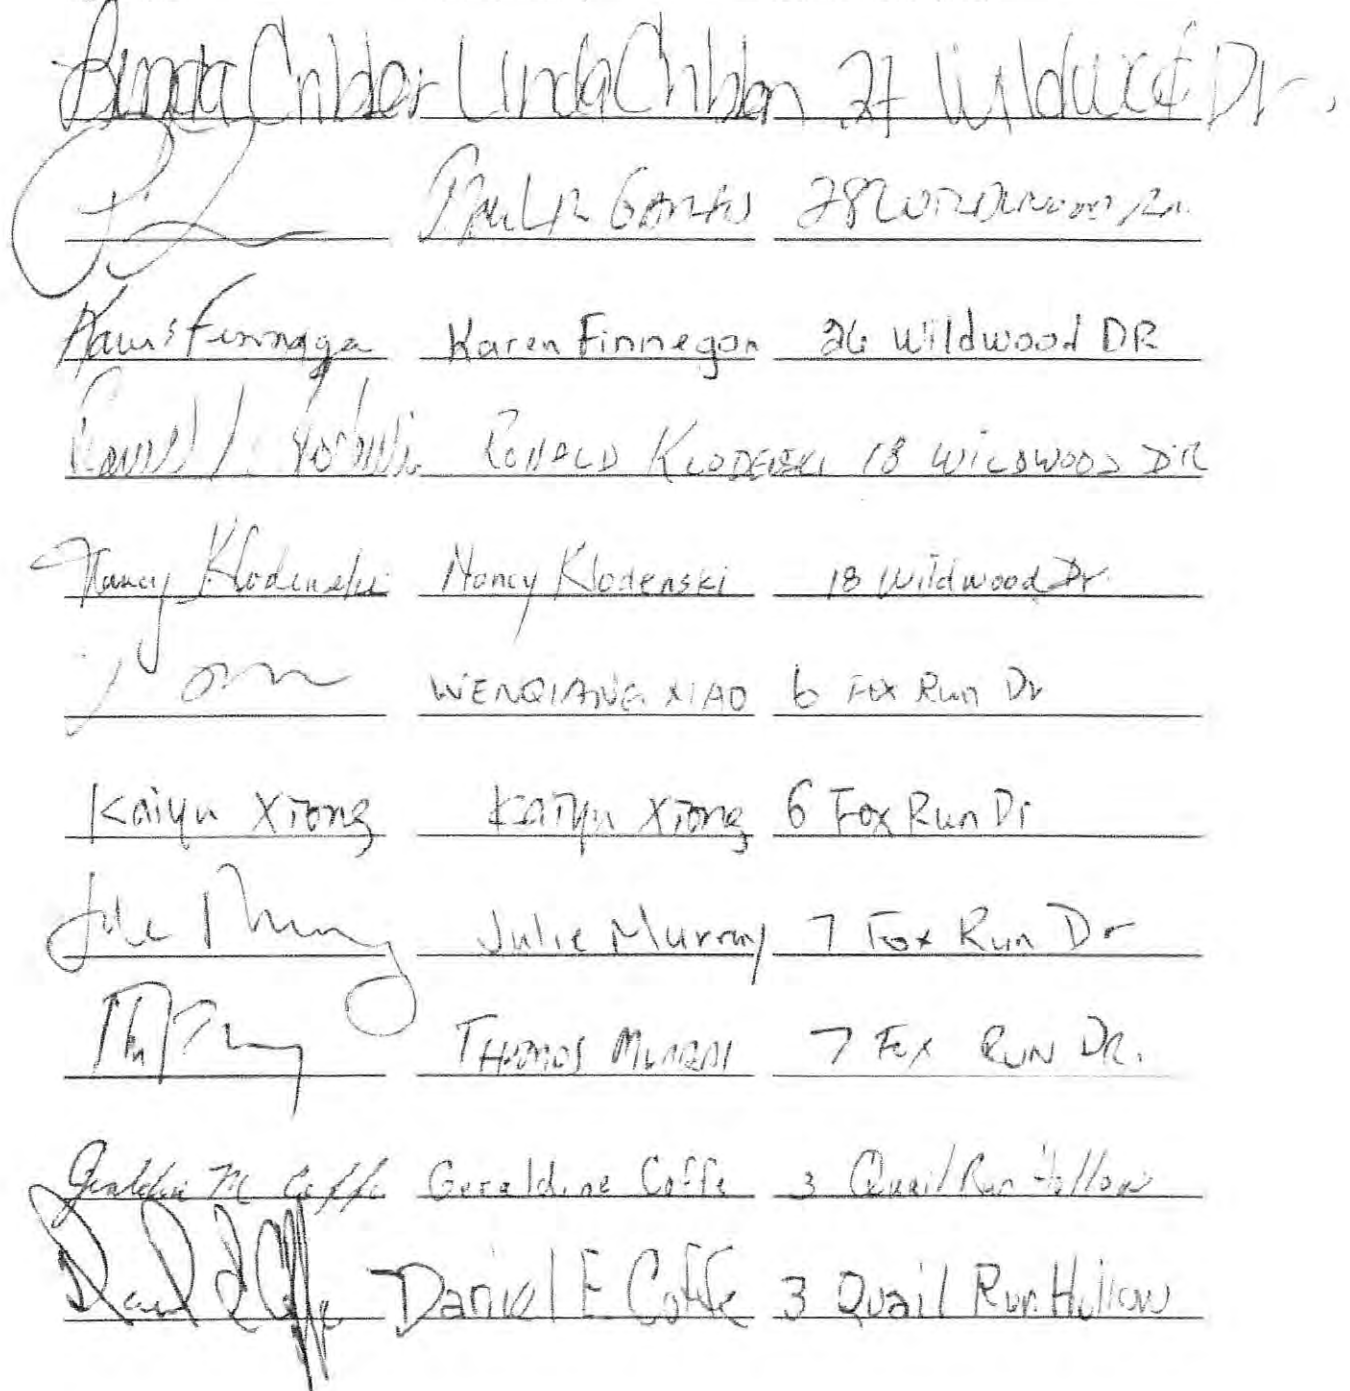 Linda Linda 27 Wildwood Dr.
28
Finnegan Karen Finnegan 26 Wildwood DR
RONALD KLODENSKI 18 WILDWOOD DR
Nancy Klodenski Nancy Klodenski 18 Wildwood Dr.
WENQIANG XIAO 6 Fox Run Dr
Kaiyu Xiong Kaiyu Xiong 6 Fox Run Dr
Julie Murray Julie Murray 7 Fox Run Dr
THOMAS MURRAY 7 FOX RUN DR.
Geraldine M Coffe Geraldine Coffe 3 Quail Run Hollow
Daniel E Coffe Daniel E. Coffe 3 Quail Run Hollow